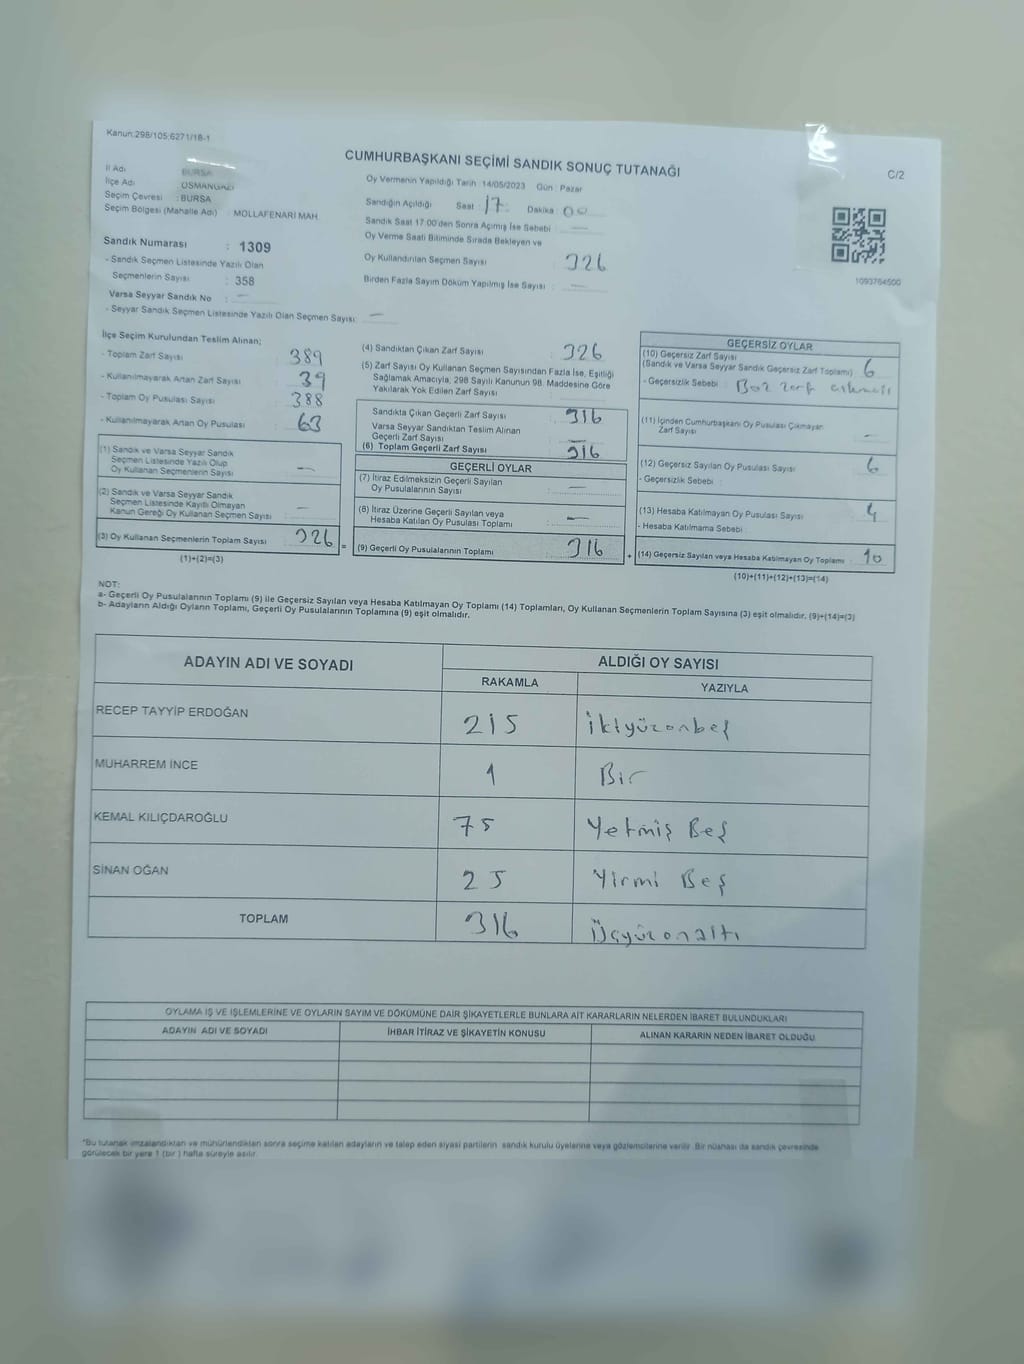 Kanun:298/105;6271/18-1
CUMHURBAŞKANI SEÇİMİ SANDIK SONUÇ TUTANAĞI
C/2
İl Adı BURSA
İlçe Adı : OSMANGAZİ
Seçim Çevresi : BURSA
Seçim Bölgesi (Mahalle Adı) : MOLLAFENARİ MAH.
Sandık Numarası : 1309
- Sandık Seçmen Listesinde Yazılı Olan
Seçmenlerin Sayısı : 358
Varsa Seyyar Sandık No : —
- Seyyar Sandık Seçmen Listesinde Yazılı Olan Seçmen Sayısı: —
Oy Vermenin Yapıldığı Tarih : 14/05/2023 Gün : Pazar
Sandığın Açıldığı Saat : 17 Dakika : 00
Sandık Saat 17:00'den Sonra Açılmış İse Sebebi : —
Oy Verme Saati Bitiminde Sırada Bekleyen ve
Oy Kullandırılan Seçmen Sayısı : 326
Birden Fazla Sayım Döküm Yapılmış İse Sayısı : —
1093764500
İlçe Seçim Kurulundan Teslim Alınan;
- Toplam Zarf Sayısı : 389
- Kullanılmayarak Artan Zarf Sayısı : 39
- Toplam Oy Pusulası Sayısı : 388
- Kullanılmayarak Artan Oy Pusulası : 63
(1) Sandık ve Varsa Seyyar Sandık
Seçmen Listesinde Yazılı Olup
Oy Kullanan Seçmenlerin Sayısı : —
(2) Sandık ve Varsa Seyyar Sandık
Seçmen Listesinde Kayıtlı Olmayan
Kanun Gereği Oy Kullanan Seçmen Sayısı : —
(3) Oy Kullanan Seçmenlerin Toplam Sayısı : 326
(1)+(2)=(3)
(4) Sandıktan Çıkan Zarf Sayısı : 326
(5) Zarf Sayısı Oy Kullanan Seçmen Sayısından Fazla İse, Eşitliği
Sağlamak Amacıyla, 298 Sayılı Kanunun 98. Maddesine Göre
Yakılarak Yok Edilen Zarf Sayısı :
Sandıkta Çıkan Geçerli Zarf Sayısı : 316
Varsa Seyyar Sandıktan Teslim Alınan
Geçerli Zarf Sayısı : —
(6) Toplam Geçerli Zarf Sayısı : 316
GEÇERLİ OYLAR
(7) İtiraz Edilmeksizin Geçerli Sayılan
Oy Pusulalarının Sayısı : —
(8) İtiraz Üzerine Geçerli Sayılan veya
Hesaba Katılan Oy Pusulası Toplamı : —
= (9) Geçerli Oy Pusulalarının Toplamı : 316
GEÇERSİZ OYLAR
(10) Geçersiz Zarf Sayısı
(Sandık ve Varsa Seyyar Sandık Geçersiz Zarf Toplamı) : 6
- Geçersizlik Sebebi : Boz zarf
(11) İçinden Cumhurbaşkanı Oy Pusulası Çıkmayan
Zarf Sayısı : —
(12) Geçersiz Sayılan Oy Pusulası Sayısı : 6
- Geçersizlik Sebebi :
(13) Hesaba Katılmayan Oy Pusulası Sayısı : 4
- Hesaba Katılmama Sebebi :
+ (14) Geçersiz Sayılan veya Hesaba Katılmayan Oy Toplamı : 10
(10)+(11)+(12)+(13)=(14)
NOT:
a- Geçerli Oy Pusulalarının Toplamı (9) ile Geçersiz Sayılan veya Hesaba Katılmayan Oy Toplamı (14) Toplamları, Oy Kullanan Seçmenlerin Toplam Sayısına (3) eşit olmalıdır. (9)+(14)=(3)
b- Adayların Aldığı Oyların Toplamı, Geçerli Oy Pusulalarının Toplamına (9) eşit olmalıdır.
ADAYIN ADI VE SOYADI ALDIĞI OY SAYISI
RAKAMLA YAZIYLA
RECEP TAYYİP ERDOĞAN 215 ikiyüzonbeş
MUHARREM İNCE 1 Bir
KEMAL KILIÇDAROĞLU 75 Yetmiş Beş
SİNAN OĞAN 25 Yirmi Beş
TOPLAM 316 Üçyüzonaltı
OYLAMA İŞ VE İŞLEMLERİNE VE OYLARIN SAYIM VE DÖKÜMÜNE DAİR ŞİKAYETLERLE BUNLARA AİT KARARLARIN NELERDEN İBARET BULUNDUKLARI
ADAYIN ADI VE SOYADI İHBAR İTİRAZ VE ŞİKAYETİN KONUSU ALINAN KARARIN NEDEN İBARET OLDUĞU
*Bu tutanak imzalandıktan ve mühürlendikten sonra seçime katılan adayların ve talep eden siyasi partilerin sandık kurulu üyelerine veya gözlemcilerine verilir. Bir nüshası da sandık çevresinde
görülecek bir yere 1 (bir ) hafta süreyle asılır.